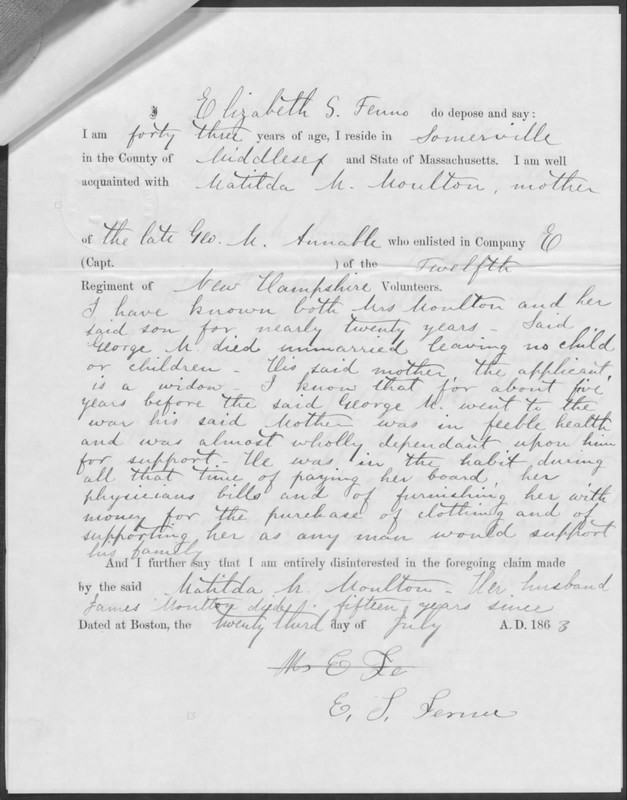 I Elizabeth S. Fenno do depose and say:
I am forty three years of age, I reside in Somerville
in the County of Middlesex and State of Massachusetts. I am well
acquainted with Matilda M. Moulton, mother
of the late Geo. M. Annable who enlisted in Company E
(Capt. ) of the Twelfth
Regiment of New Hampshire Volunteers.
I have known both Mrs Moulton and her
said son for nearly twenty years - Said
George M. died unmarried leaving no child
or children - His said mother, the applicant,
is a widow - I know that for about five
years before the said George M. went to the
war his said Mother was in feeble health
and was almost wholly dependant upon him
for support - He was in the habit during
all that time of paying her board, her
physicians bills and of furnishing her with
money for the purchase of clothing and of
supporting her as any man would support
his family
And I further say that I am entirely disinterested in the foregoing claim made
by the said Matilda M. Moulton - Her husband
James Moulton died fifteen years since
Dated at Boston, the twenty third day of July A. D. 1863
Mrs E Fe
E. S. Fenno